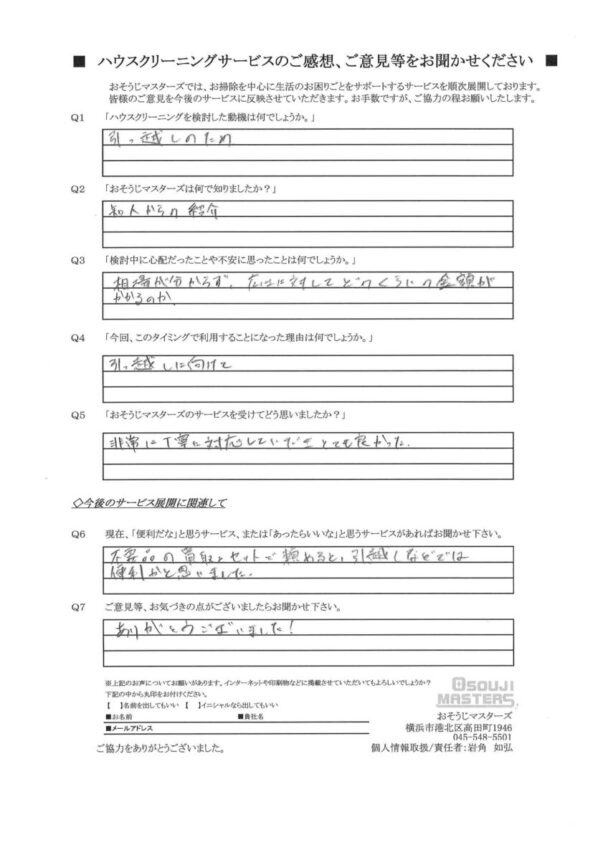 ■ ハウスクリーニングサービスのご感想、ご意見等をお聞かせください ■
おそうじマスターズでは、お掃除を中心に生活のお困りごとをサポートするサービスを順次展開しております。
皆様のご意見を今後のサービスに反映させていただきます。お手数ですが、ご協力の程お願いしたします。
Q1 「ハウスクリーニングを検討した動機は何でしょうか。」
引っ越しのため
Q2 「おそうじマスターズは何で知りましたか？」
知人からの紹介
Q3 「検討中に心配だったことや不安に思ったことは何でしょうか。」
相場が分からず、広さに対してどのくらいの金額が
かかるのか、
Q4 「今回、このタイミングで利用することになった理由は何でしょうか。」
引っ越しに向けて
Q5 「おそうじマスターズのサービスを受けてどう思いましたか？」
非常に丁寧に対応していただきとても良かった.
◇今後のサービス展開に関連して
Q6 現在、「便利だな」と思うサービス、または「あったらいいな」と思うサービスがあればお聞かせ下さい。
不要品の買取とセットで頼めると、引越しなどでは
便利かと思いました.
Q7 ご意見等、お気づきの点がございましたらお聞かせ下さい。
ありがとうございました!
※上記のお声についてお願いがあります。インターネットや印刷物などに掲載させていただいてもよろしいでしょうか？
下記の中から丸印をお付けください。
【 】名前を出してもいい 【 】イニシャルなら出してもいい
■お名前 ■貴社名
■メールアドレス
ご協力をありがとうございました。
OSOUJI
MASTERS
おそうじマスターズ
横浜市港北区高田町1946
045-548-5501
個人情報取扱/責任者:岩角 如弘